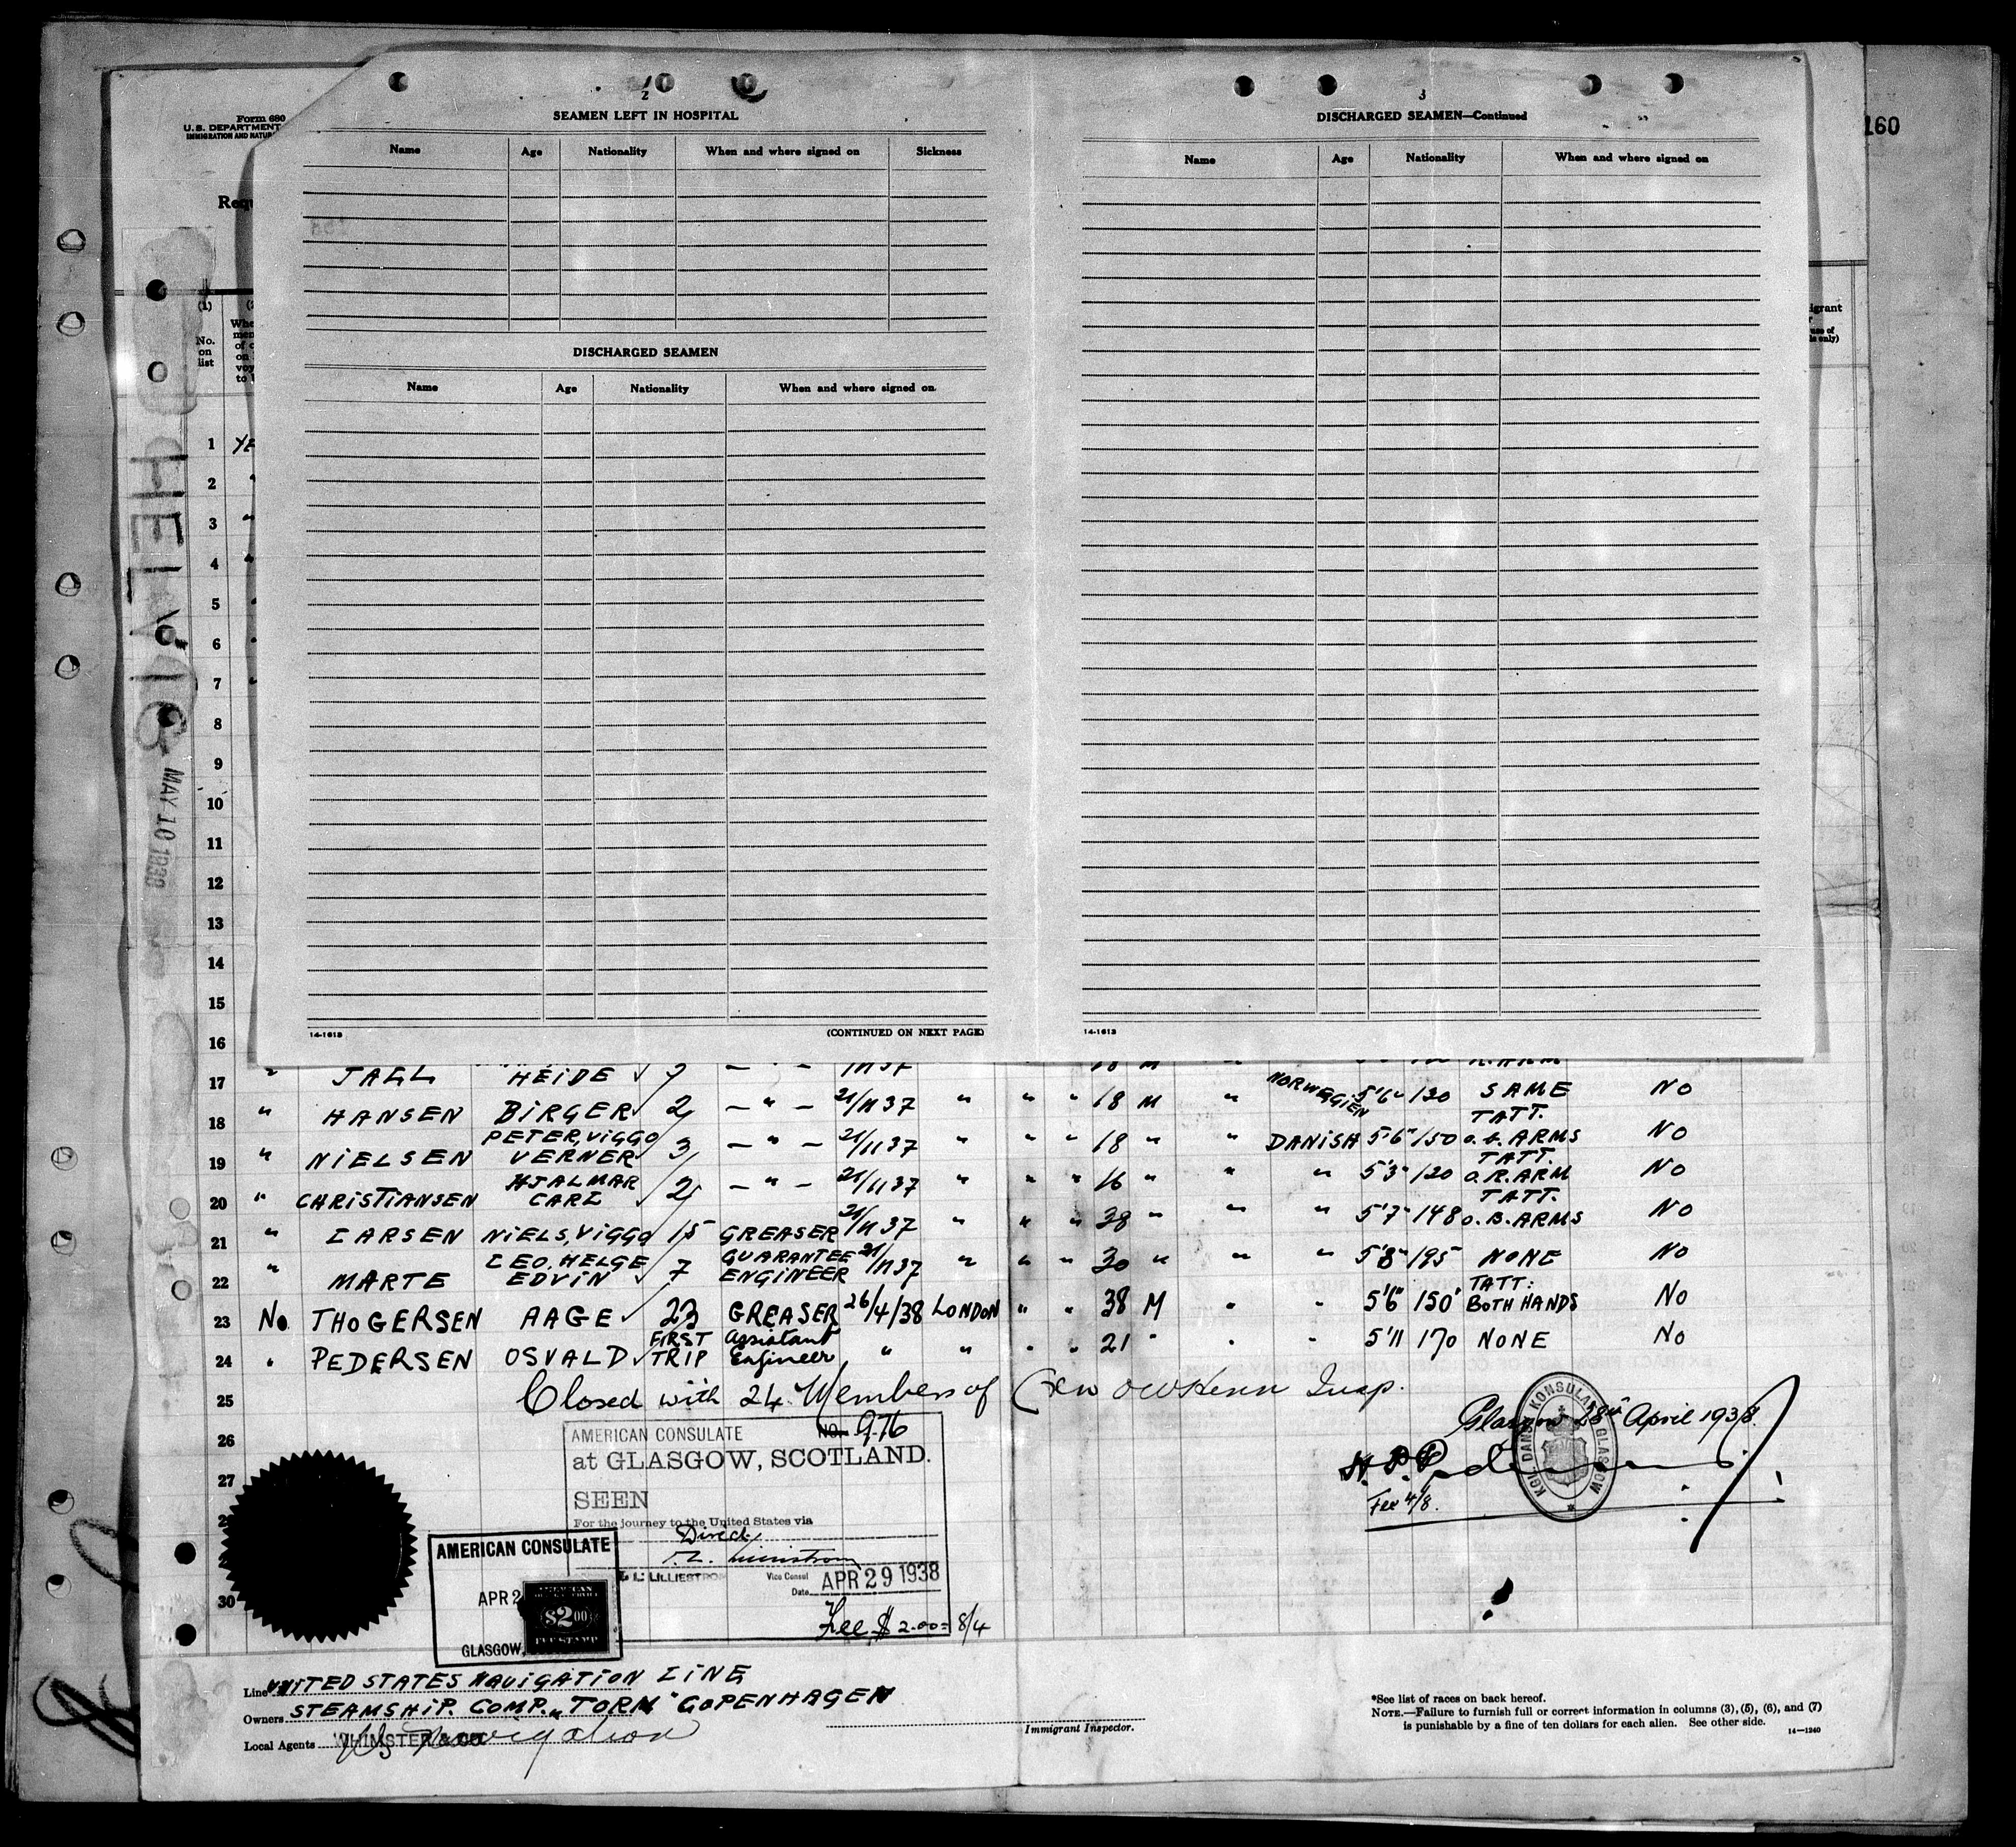 Form 680
U.S. DEPARTMENT
IMMIGRATION AND
160
2
SEAMEN LEFT IN HOSPITAL
Name Age Nationality When and where signed on Sickness
DISCHARGED SEAMEN
Name Age Nationality When and where signed on
14-1613 (CONTINUED ON NEXT PAGE)
3
DISCHARGED SEAMEN—Continued
Name Age Nationality When and where signed on
14-1613
(1)
No.
on
list
HELVIG
MAY 10 1938
1
2
3
4
5
6
7
8
9
10
11
12
13
14
15
16
17 " JALL HEIDE
18 " HANSEN BIRGER 2 — " — 21/11 37 " " " 18 M " NORWEGIEN 5'6" 120 SAME NO
19 " NIELSEN PETER, VIGGO VERNER 3 — " — 21/11 37 " " " 18 " " DANISH 5'6" 150 TATT. O.B. ARMS NO
20 " CHRISTIANSEN HJALMAR CARL 2 — " — 21/11 37 " " " 16 " " " 5'3" 120 TATT. O.R.ARM NO
21 " LARSEN NIELS, VIGGO 15 GREASER 21/11 37 " " " 38 " " " 5'7" 148 TATT. O.B. ARMS NO
22 " MARTE LEO, HELGE EDVIN 7 GUARANTEE ENGINEER 21/11 37 " " " 30 " " " 5'8" 195 NONE NO
23 No THOGERSEN AAGE 23 GREASER 26/4/38 LONDON " " 38 M " " 5'6" 150 TATT: BOTH HANDS No
24 " PEDERSEN OSVALD FIRST TRIP Assistant Engineer " " " " 21 " " " 5'11 170 NONE No
25 Closed with 24 Members of Crew
26
27
30
Glasgow 28th April 1938.
Fee 4/8.
KGL. DANSK KONSULAT GLASGOW
AMERICAN CONSULATE NO. 976
at GLASGOW, SCOTLAND.
SEEN
For the journey to the United States via
Direct
Vice Consul
Date APR 29 1938
Fee $ 2.00 = 8/4
AMERICAN CONSULATE
APR 2
GLASGOW,
AMERICAN
$2.00
FEE STAMP
Line UNITED STATES NAVIGATION LINE
Owners STEAMSHIP. COMP. "TORM" COPENHAGEN
Local Agents WHIMSTER & CO.
US Navigation
Immigrant Inspector.
*See list of races on back hereof.
NOTE.—Failure to furnish full or correct information in columns (3), (5), (6), and (7)
is punishable by a fine of ten dollars for each alien. See other side.
14—1240